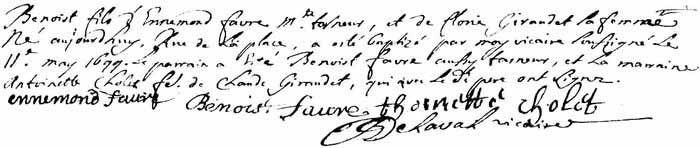 Benoist fils d'Ennemond favre m.tre tasneur, et de florie Giraudet sa femme
Né aujourdhuy Rue de la place, a esté baptizé par moy vicaire soussigné Le
11.e may 1699. Le parrain a esté Benoist favre aussy tasneur, et La marraine
Antoinette Cholet fe. de Claude Giraudet, qui avec Le d. pere ont signez.
ennemond favre Benoist favre thoinette cholet
Delaval vicaire